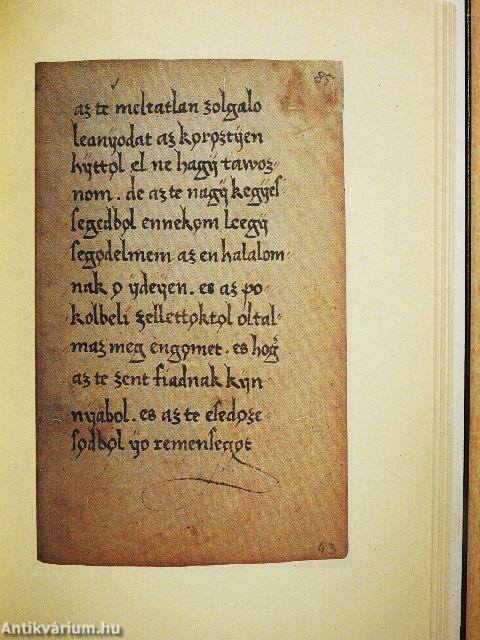 85
az te meltatlan zolgalo
leanÿodat az koroztÿen
hÿttol el ne hagÿ tawoz⸗
nom . de az te nagÿ kegÿes⸗
segedbol ennekom leegÿ
segodelmem az en halalom⸗
nak o ÿdeÿen . es az po⸗
kolbeli zellettoktol oltal⸗
maz meg engomet . es hog̃
az te zent fiadnak kÿn
nÿabol . es az te esedoze⸗
sodbol ÿo remensegot
43
Antikvárium.hu